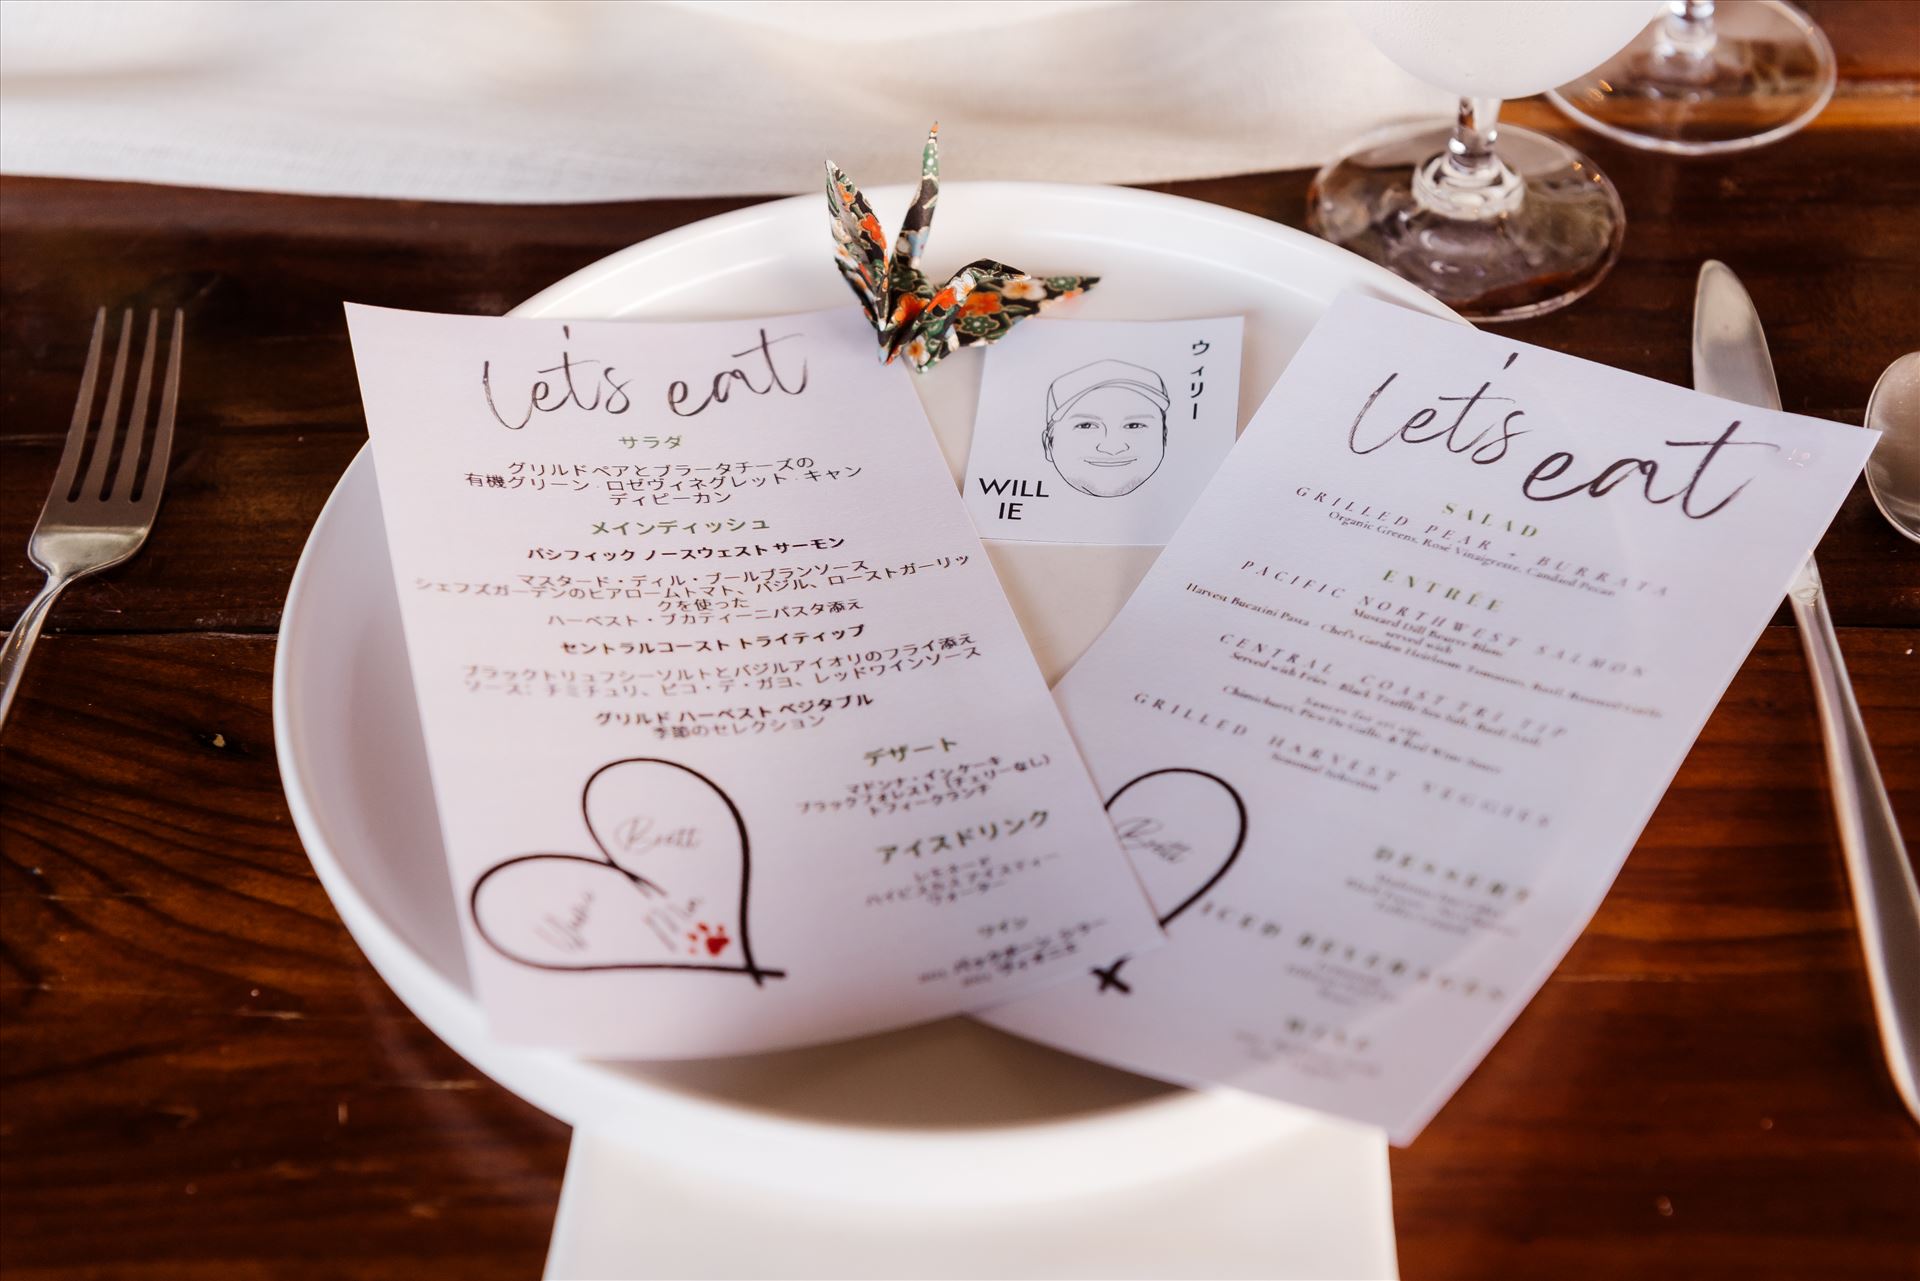 let's eat
サラダ
グリルドペアとブラータチーズの
有機グリーン・ロゼヴィネグレット・キャン
ディピーカン
メインディッシュ
パシフィック ノースウェスト サーモン
マスタード・ディル・ブールブランソース
シェフズガーデンのヒアロームトマト、バジル、ローストガーリッ
クを使った
ハーベスト・ブカティーニパスタ添え
セントラルコースト トライティップ
ブラックトリュフシーソルトとバジルアイオリのフライ添え
ソース: チミチュリ、ピコ・デ・ガヨ、レッドワインソース
グリルド ハーベスト ベジタブル
季節のセレクション
デザート
マドンナ・インケーキ
ブラックフォレスト (チェリーなし)
トフィークランチ
アイスドリンク
レモネード
ハイビスカス アイスティー
ウォーター
ワイン
Brett
Mia
ウィリー
WILL
IE
let's eat
SALAD
GRILLED PEAR + BURRATA
Organic Greens, Rosé Vinaigrette, Candied Pecan
ENTRÉE
PACIFIC NORTHWEST SALMON
Mustard Dill Beurre Blanc
served with
Harvest Bucatini Pasta - Chef's Garden Heirloom Tomatoes, Basil, Roasted Garlic
CENTRAL COAST TRI TIP
Served with Fries - Black Truffle Sea Salt, Basil Aioli,
Chimichurri, Pico De Gallo, & Red Wine Sauce
GRILLED HARVEST VEGGIES
Seasonal Selection
DESSERT
ICED BEVERAGES
WINE
Brett